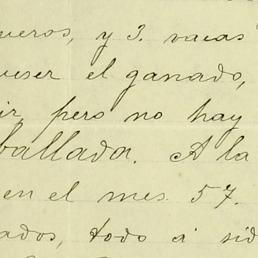 ueros, y 3. vacas
user el ganado,
ir, pero no hay
ballada. A la
en el mes 57.
ados, todo á sid